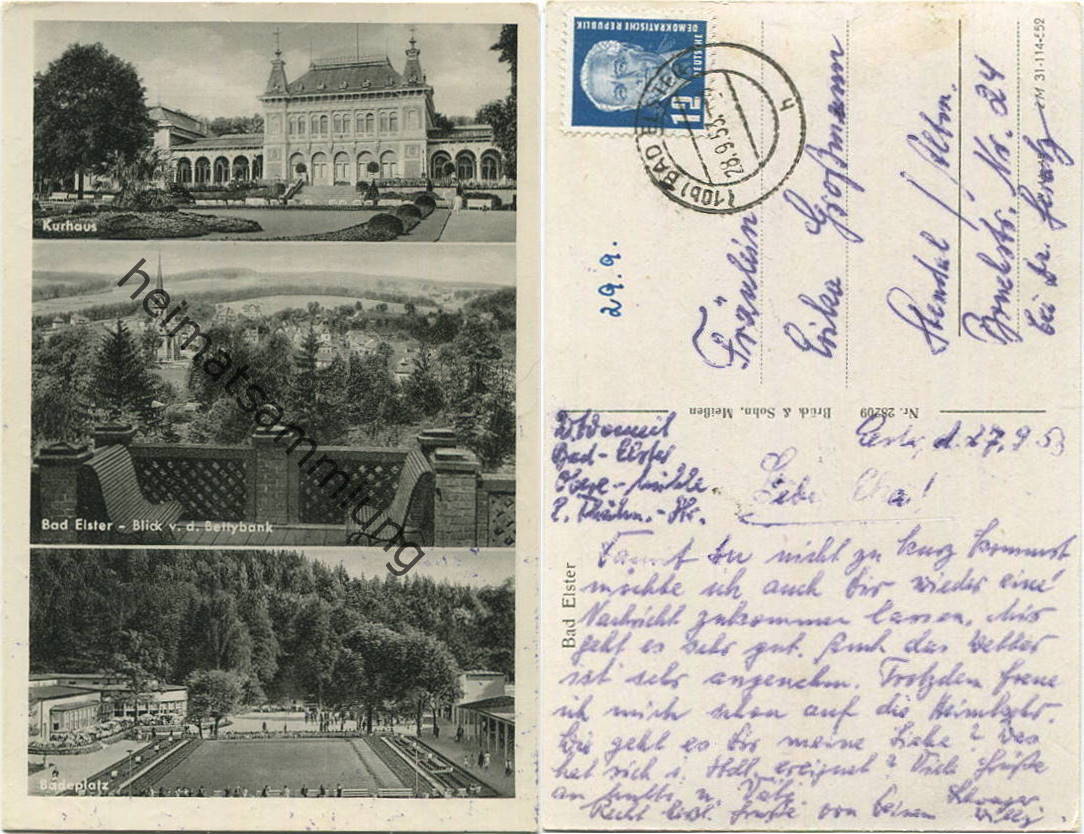 Kurhaus
Bad Elster - Blick v. d. Bettybank
Badeplatz
heimatsammlung
DEUTSCHE
DEMOKRATISCHE REPUBLIK
12
(10b) BAD ELSTER
28.9.53
h
29.9.
Fräulein
Erika Großmann
Stendal / Altm.
Nr. 24
bei Dr.
31-114-852
Brück & Sohn, Meißen
Nr. 28209
Bad Elster
Bad-Elster
Obere-Mühle
d. 27.9.53
Liebe
Damit Du nicht zu kurz kommst
möchte ich auch Dir wieder eine
Nachricht zukommen lassen. Mir
geht es sehr gut. Auch das Wetter
ist sehr angenehm. Trotzdem freue
ich mich schon auf die Heimkehr.
Wie geht es Dir meine Liebe? Was
hat sich i. ereignet? Viele Grüße
an u.
Recht herzl. Grüße von Deinem
Schwager
Willy